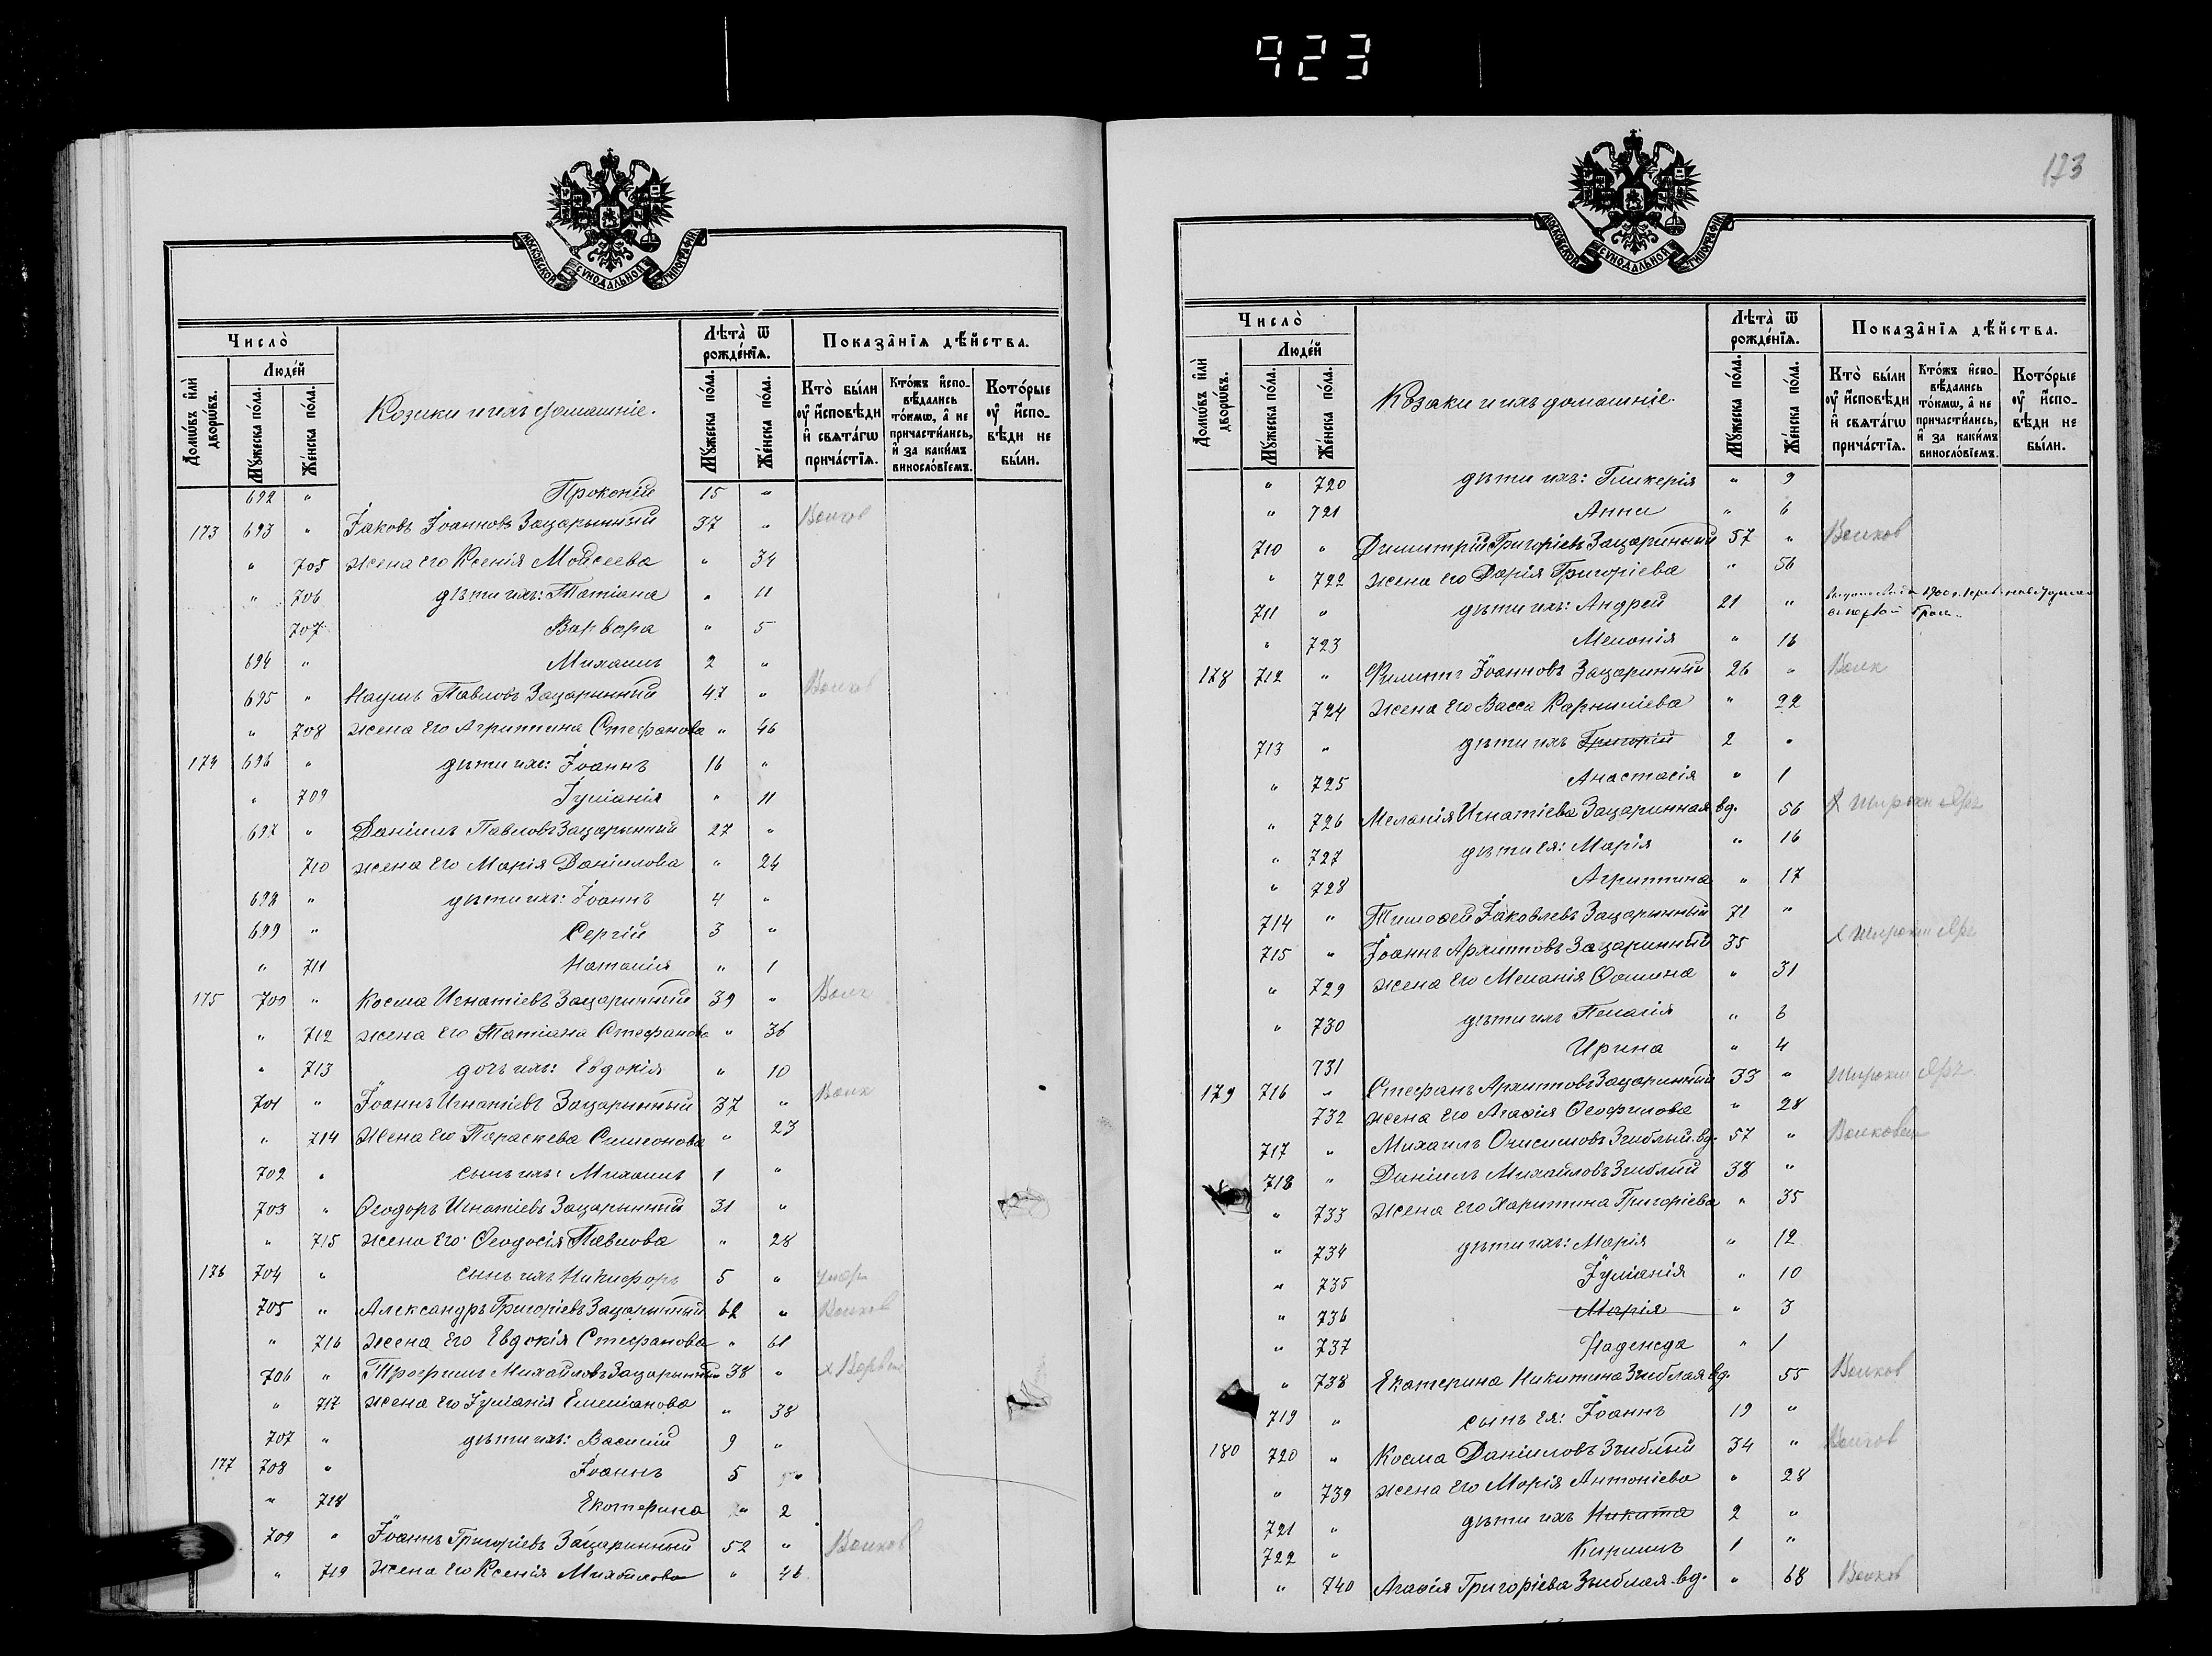 923
МОСКОВСКОЙ СѴНОДАЛЬНОЙ ТИПОГРАФІИ
Число̀
Домѡ́въ и҆лѝ дворѡ́въ.
Люде́й
Мꙋ́жеска по́ла.
Же́нска по́ла.
Козаки и ихъ домашніе.
Лѣта̀ ѿ рожде́нїѧ.
Мꙋ́жеска по́ла.
Же́нска по́ла.
Показа̂нїѧ дѣ́йства.
Кто̀ бы́ли ᲂу҆ и҆сповѣди и҆ свѧта́гѡ прича́стїѧ.
Кто́жъ и҆сповѣ́дались то́кмѡ, а҆ не причасти́лись, и҆ за каки́мъ винослѡ́вїемъ.
Кото́рые ᲂу҆ и҆сповѣди не бы́ли.
692 " Прокопій 15 "
173 693 " Іаковъ Іоанновъ Зацарынный 37 " Волков
" 705 жена его Ксенія Моѵсеева " 34
" 706 дѣти ихъ: Татіана " 11
707 Варвара " 5
694 " Михаилъ 2 "
695 " Наумъ Павловъ Зацарынный 47 " Волков
" 708 жена его Агриппина Стефанова " 46
174 696 " дѣти ихъ: Іоаннъ 16 "
" 709 Іуліанія " 11
697 " Даніилъ Павловъ Зацарынный 27 "
710 жена его Марія Даніилова " 24
698 " дѣти ихъ: Іоаннъ 4 "
699 " Сергій 3 "
" 711 Наталія " 1
175 700 " Косма Игнатіевъ Зацаринный 39 " Волк
" 712 жена его Татіана Стефанова " 36
" 713 дочь ихъ: Евдокія " 10
701 " Іоаннъ Игнатіевъ Зацарынный 37 " Волк
" 714 Жена его Параскева Симеонова " 23
702 " сынъ ихъ: Михаилъ 1 "
703 " Ѳеодоръ Игнатіевъ Зацарынный 31 "
" 715 жена его Ѳеодосія Павлова " 28
176 704 " сынъ ихъ Никифоръ 5 "
705 " Александръ Григоріевъ Зацаринный 62 " Волков
" 716 жена его Евдокія Стефанова " 61
706 " Трофимъ Михайловъ Зацарынный 38 "
" 717 жена его Іуліанія Емеліанова " 38
707 " дѣти ихъ: Василій 9 "
177 708 " Іоаннъ 5 "
" 718 Екатерина " 2
709 " Іоаннъ Григоріевъ Зацаринный 52 " Волков
" 719 Жена его Ксенія Михайлова " 46
173
МОСКОВСКОЙ СѴНОДАЛЬНОЙ ТИПОГРАФІИ
Число̀
Домѡ́въ и҆лѝ дворѡ́въ.
Люде́й
Мꙋ́жеска по́ла.
Же́нска по́ла.
Козаки и ихъ домашніе.
Лѣта̀ ѿ рожде́нїѧ.
Мꙋ́жеска по́ла.
Же́нска по́ла.
Показа̂нїѧ дѣ́йства.
Кто̀ бы́ли ᲂу҆ и҆сповѣди и҆ свѧта́гѡ прича́стїѧ.
Кто́жъ и҆сповѣ́дались то́кмѡ, а҆ не причасти́лись, и҆ за каки́мъ винослѡ́вїемъ.
Кото́рые ᲂу҆ и҆сповѣди не бы́ли.
" 720 дѣти ихъ: Гликерія " 9
" 721 Анна " 6
710 " Димитрій Григоріевъ Зацаринный 57 " Волков
" 722 жена его Дарія Григоріева " 56
711 " дѣти ихъ: Андрей 21 "
" 723 Меланія " 16
178 712 " Филиппъ Іоанновъ Зацаринный 26 " Волк
724 Жена его Васса Карниліева " 22
713 " дѣти ихъ Григорій 2 "
" 725 Анастасія " 1
" 726 Меланія Игнатіева Зацаринная вд. 56 х Широкій Яръ
" 727 дѣти ея: Марія " 16
" 728 Агриппина " 17
714 " Тимоѳей Іаковлевъ Зацарынный 71 "
715 " Іоаннъ Архиповъ Зацаринный 35 х Широкій Яръ
" 729 жена его Меланія Ѳомина " 31
" 730 дѣти ихъ Пелагія " 6
731 Ирина " 4
179 716 " Стефанъ Архиповъ Зацаринный 33 " Широкій Яръ
732 жена его Агаѳія Ѳеофилова " 28
717 " Михаилъ Онисимовъ Зыблый вд. 57 " Волковец
718 " Даніилъ Михайловъ Зыблый 38 "
" 733 жена его Харитина Григоріева " 35
" 734 дѣти ихъ: Марія " 12
" 735 Іуліанія " 10
" 736 Марія " 3
" 737 Надежда " 1
" 738 Екатерина Никитина Зыблая вд. 55 Волков
719 " сынъ ея: Іоаннъ 19 "
180 720 " Косма Даніиловъ Зыблый 34 " Волков
" 739 жена его Марія Антоніева " 28
721 " дѣти ихъ Никита 2 "
722 " Кириллъ 1 "
" 740 Агаѳія Григоріева Зыблая вд. " 68 Волков